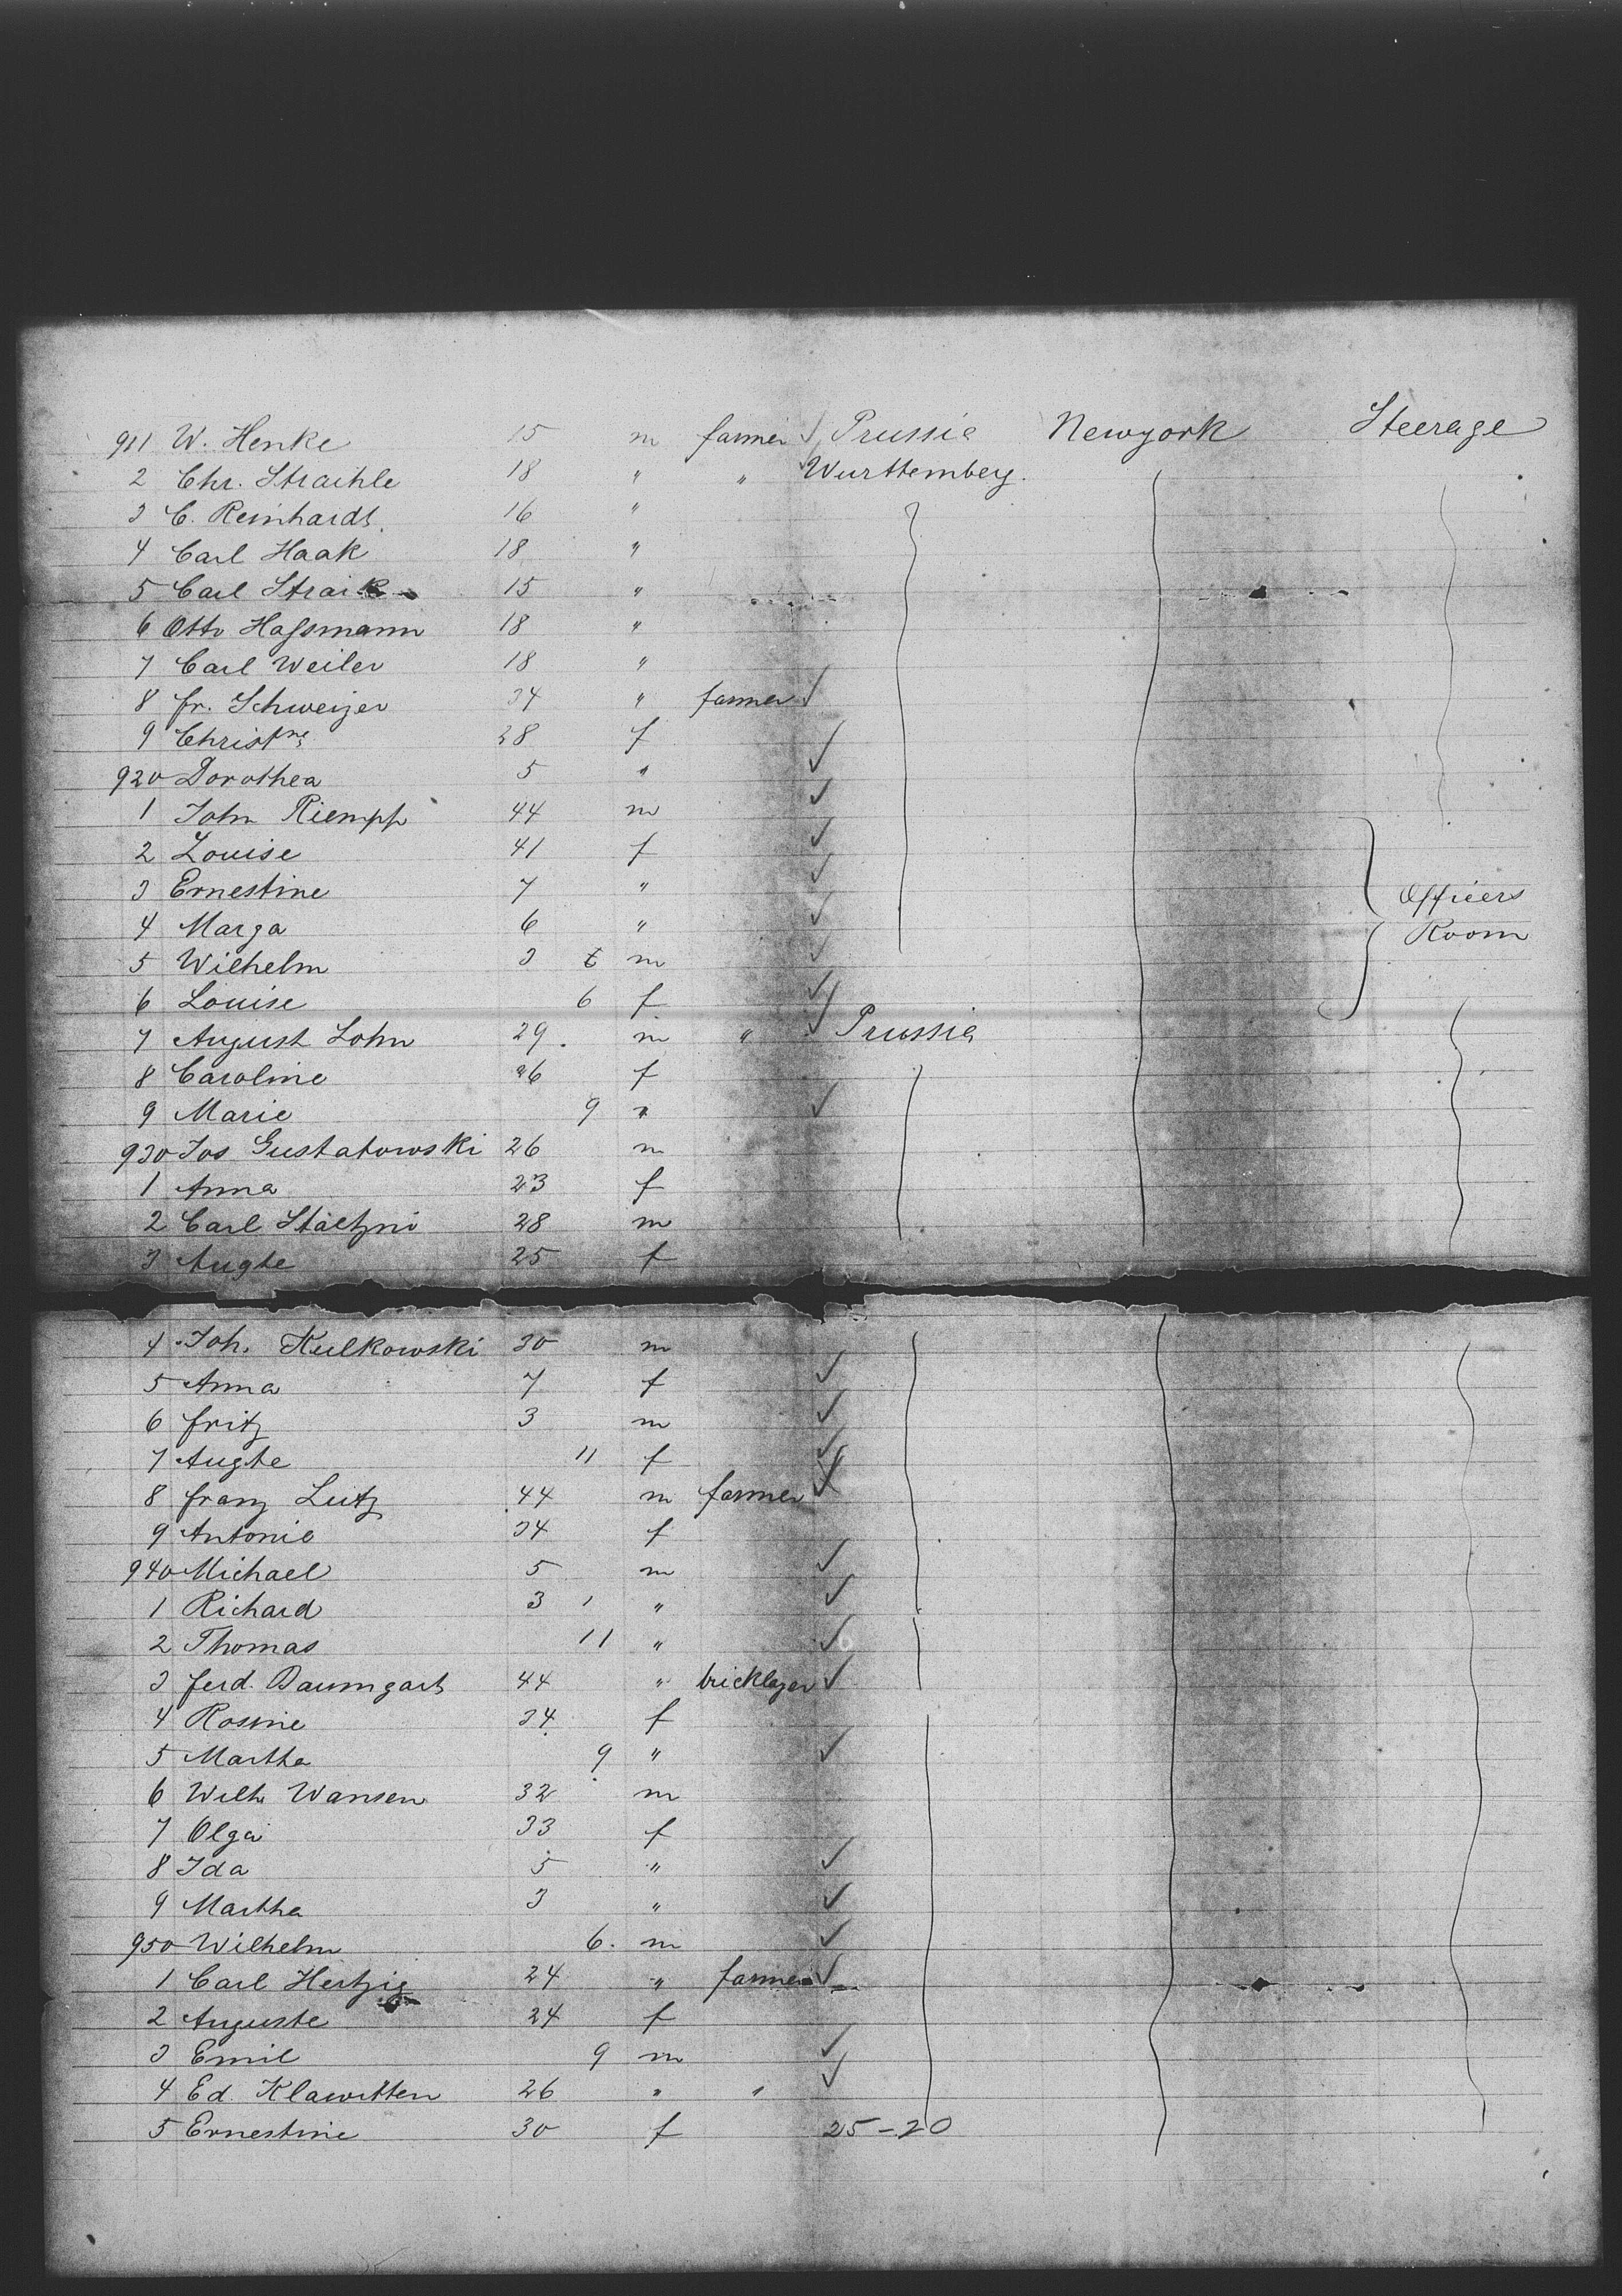 911 W. Henke 15 m farmer Prussia Newyork Steerage
2 Chr. Straehle 18 " " Wurttemberg.
3 C. Reinhardt 16 "
4 Carl Haak 18 "
5 Carl 15 "
6 Otto Hassmann 18 "
7 Carl Weiler 18 "
8 Fr. Schweizer 34 " farmer
9 Christne 28 f
920 Dorothea 5 "
1 John Riempp 44 m
2 Louise 41 f
3 Ernestine 7 " Officers
4 Marga 6 " Room
5 Wilhelm 3 m
6 Louise 6 f
7 August Lohn 29 m " Prussia
8 Caroline 26 f
9 Marie 9 "
930 Jos Gustatowski 26 m
1 Anna 23 f
2 Carl 28 m
3 Augte 25 f
4 Joh. Kulkowski 30 m
5 Anna 7 f
6 Fritz 3 m
7 Augte 11 f
8 Franz Lutz 44 m farmer
9 Antonie 34 f
940 Michael 5 m
1 Richard 3 "
2 Thomas 11 "
3 Ferd. Baumgart 44 " bricklayer
4 Rosine 34 f
5 Martha 9 "
6 Wilh Wansen 32 m
7 Olga 33 f
8 Ida 5 "
9 Martha 3 "
950 Wilhelm 6 m
1 Carl Hertzig 24 " farmer
2 Auguste 24 f
3 Emil 9 m
4 Ed. Klawitten 26 " "
5 Ernestine 30 f 25-20